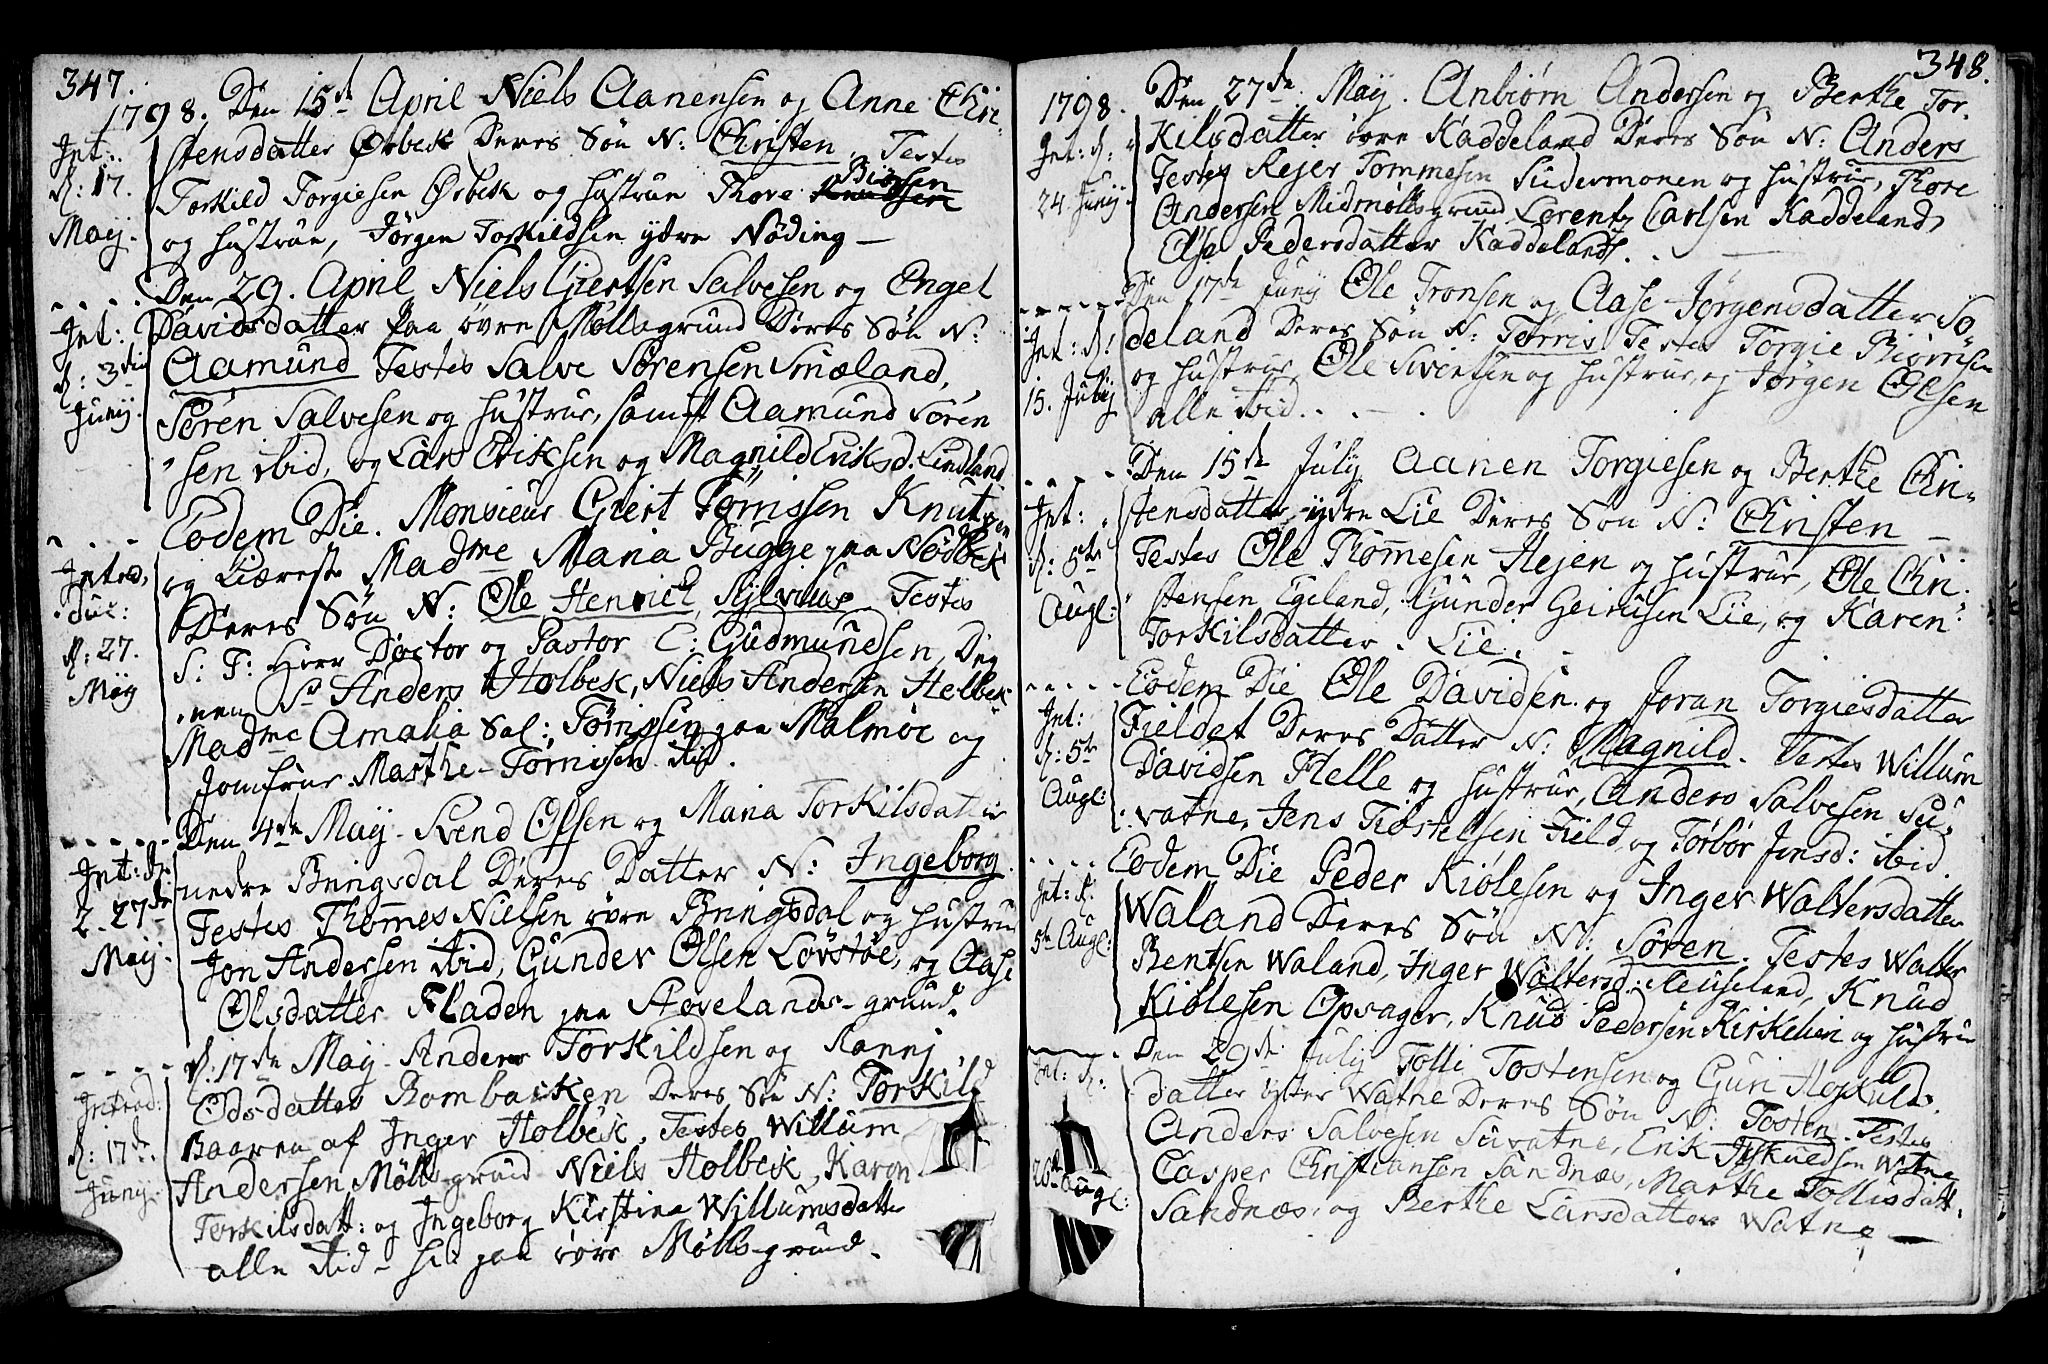 347.
1798. Den 15de April Niels Aanensen og Anne Chri-
Int:
d: 17.
Maij.
stensdatter Ørbek Deres Søn N: Christen. Testes
Torkild Torgiesen Ørbek og hustrue Thore Knudsen Biorsen
og hustrue, Jörgen Torkildsen ydre Nöding —
Den 29. April Niels Giertsen Salvesen og Engel
Int:
d: 3die
Junij.
Davidsdatter paa övre Möllegrund Deres Søn N:
Aamund Testes Salve Sörensen Smæland,
Sören Salvesen og hustrue, samt Aamund Sören
sen ibid, og Lars Eriksen og Magnild Eriksd. Lindland
Eodem Die. Monsieur Giert Törrissen Knutzen
og Kiæreste Madme Maria Bugge paa Nödbek
Introd,
duc:
d: 27.
Maij
Deres Søn N: Ole Henrich Sylvius Testes
S: T: Herr Doctor og Pastor C: Gudmundsen, Deg
nen Sr Anders Holbek, Niels Andersen Holbek
Madme Amalia Sal: Törrissen paa Malmöe og
Jomfrue Marthe Törrissen ibid.
Den 4de Maij Svend Olsen og Maria Torkilsdatter
Int: d:
27de
Maij.
nedre Bringsdal Deres Datter N: Ingeborg.
Testes Thommes Nielsen övre Bringsdal og hustrue
Jon Andersen ibid, Gunder Olsen Lövstöe, og Aase
Olsdatter Fladen paa Stovelands-grund.
d: 17de Maij Anders Torkildsen og Ranni
Introd:
d: 17de
Junij.
Edsdatter Rombacken Deres Søn N: Torkild
Baaren af Inger Holbek. Testes Willum
Andersen Mölls-grund Niels Holbek, Karen
Torkilsdatt: og Ingeborg Kirstine Willumsdatter
alle ibid paa övre Mölls-grund.
348.
1798.
Int: d:
24. Junij.
Den 27de Maij. Anbiörn Andersen og Berthe Tor-
kilsdatter övre Kaddeland Deres Søn N: Anders
Testes Rejer Tommesen Sudermonen og hustrue, Thore
Andersen Midmöllsgrund Lorentz Carlsen Kaddeland,
Else Pedersdatter Kaddeland.
Den 17de Junij Ole Tronsen og Aase Jörgensdatter Sö
Int: d:
15. Julij
deland Deres Søn N: Torris Testes Torgie Biörnsen
og hustrue, Ole Sivertsen og hustrue, og Jörgen Olsen
alle ibid.
Den 15de Julij Aanen Torgiesen og Berthe Chri-
Int:
d: 5te
Augl:
stensdatter, ydre Lie Deres Søn N: Christen —
Testes Ole Thommesen Hejen og hustrue, Ole Chri-
stensen Egeland, Gunder Lie, og Karen
Torkilsdatter. Lie.
Eodem Die Ole Davidsen og Joran Torgiesdatter
Int:
d: 5te
Augl:
Fieldet Deres Datter N: Magnild. Testes Willum
Davidsen Helle og hustrue, Anders Salvesen Su-
vatne, Jens Tiöstelsen Field, og Torbör Jensd: ibid.
Eodem Die Peder Kiölesen og Inger Waltersdatter
Int: d:
5te Augl:
Waland Deres Søn N: Sören. Testes Walter
Bentsen Waland, Inger Waltersd: Heuseland, Knud
Kiölesen Opsager, Knud Pedersen Kirkelien og hustrue
Den 29de Julij Tolli Tostensen og Guri Hoskulds
Int: d:
26de Augl:
datter öster Watne Deres Søn N: Tosten. Testes
Anders Salvesen Suvatne, Erik Watne
Casper Christiansen Sandnæs, Marthe Tollisdatt.
Sandnæs, og Berthe Larsdatter Watne —